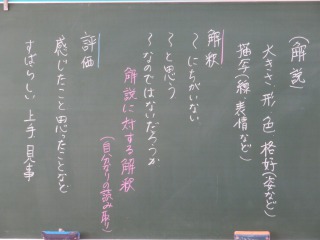 (解説)
大きさ 形 色 格好(姿など)
描写(線 表情など)
解釈
～にちがいない
～と思う
～なのではないだろうか
解説に対する解釈
(自分なりの読み取り)
評価
感じたこと 思ったことなど
すばらしい 上手 見事